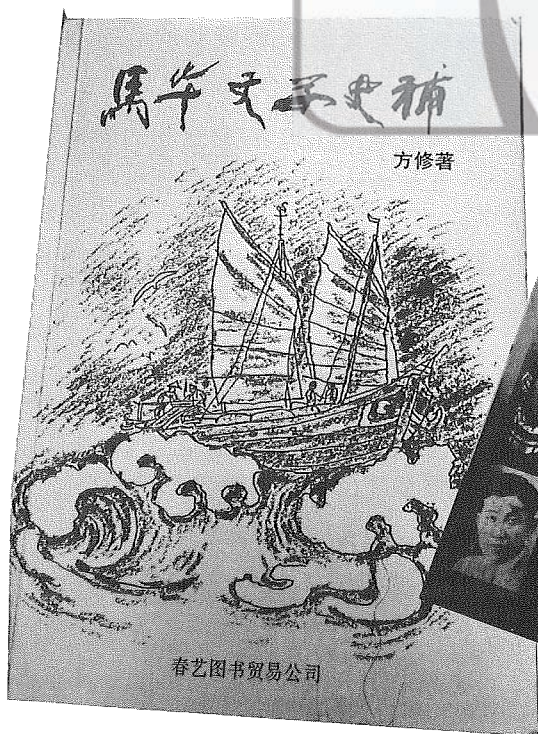 馬华文学史補
方修著
春艺图书贸易公司